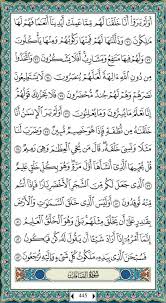 أَوَلَمْ يَرَوْا أَنَّا خَلَقْنَا لَهُم مِّمَّا عَمِلَتْ أَيْدِينَا أَنْعَٰمًا فَهُمْ لَهَا
مَٰلِكُونَ وَذَلَّلْنَٰهَا لَهُمْ فَمِنْهَا رَكُوبُهُمْ وَمِنْهَا يَأْكُلُونَ
وَلَهُمْ فِيهَا مَنَٰفِعُ وَمَشَارِبُ أَفَلَا يَشْكُرُونَ وَاتَّخَذُوا
مِن دُونِ اللَّهِ ءَالِهَةً لَّعَلَّهُمْ يُنصَرُونَ لَا يَسْتَطِيعُونَ
نَصْرَهُمْ وَهُمْ لَهُمْ جُندٌ مُّحْضَرُونَ فَلَا يَحْزُنكَ قَوْلُهُمْ
إِنَّا نَعْلَمُ مَا يُسِرُّونَ وَمَا يُعْلِنُونَ أَوَلَمْ يَرَ الْإِنسَٰنُ أَنَّا
خَلَقْنَٰهُ مِن نُّطْفَةٍ فَإِذَا هُوَ خَصِيمٌ مُّبِينٌ وَضَرَبَ لَنَا
مَثَلًا وَنَسِيَ خَلْقَهُ قَالَ مَن يُحْيِ الْعِظَٰمَ وَهِيَ رَمِيمٌ
قُلْ يُحْيِيهَا الَّذِي أَنشَأَهَا أَوَّلَ مَرَّةٍ وَهُوَ بِكُلِّ خَلْقٍ عَلِيمٌ
الَّذِي جَعَلَ لَكُم مِّنَ الشَّجَرِ الْأَخْضَرِ نَارًا
فَإِذَا أَنتُم مِّنْهُ تُوقِدُونَ أَوَلَيْسَ الَّذِي خَلَقَ السَّمَٰوَٰتِ وَالْأَرْضَ
بِقَٰدِرٍ عَلَىٰ أَن يَخْلُقَ مِثْلَهُم بَلَىٰ وَهُوَ الْخَلَّٰقُ الْعَلِيمُ
إِنَّمَا أَمْرُهُ إِذَا أَرَادَ شَيْئًا أَن يَقُولَ لَهُ كُن فَيَكُونُ
فَسُبْحَٰنَ الَّذِي بِيَدِهِ مَلَكُوتُ كُلِّ شَيْءٍ وَإِلَيْهِ تُرْجَعُونَ
سُورَةُ الصَّافَّاتِ
445